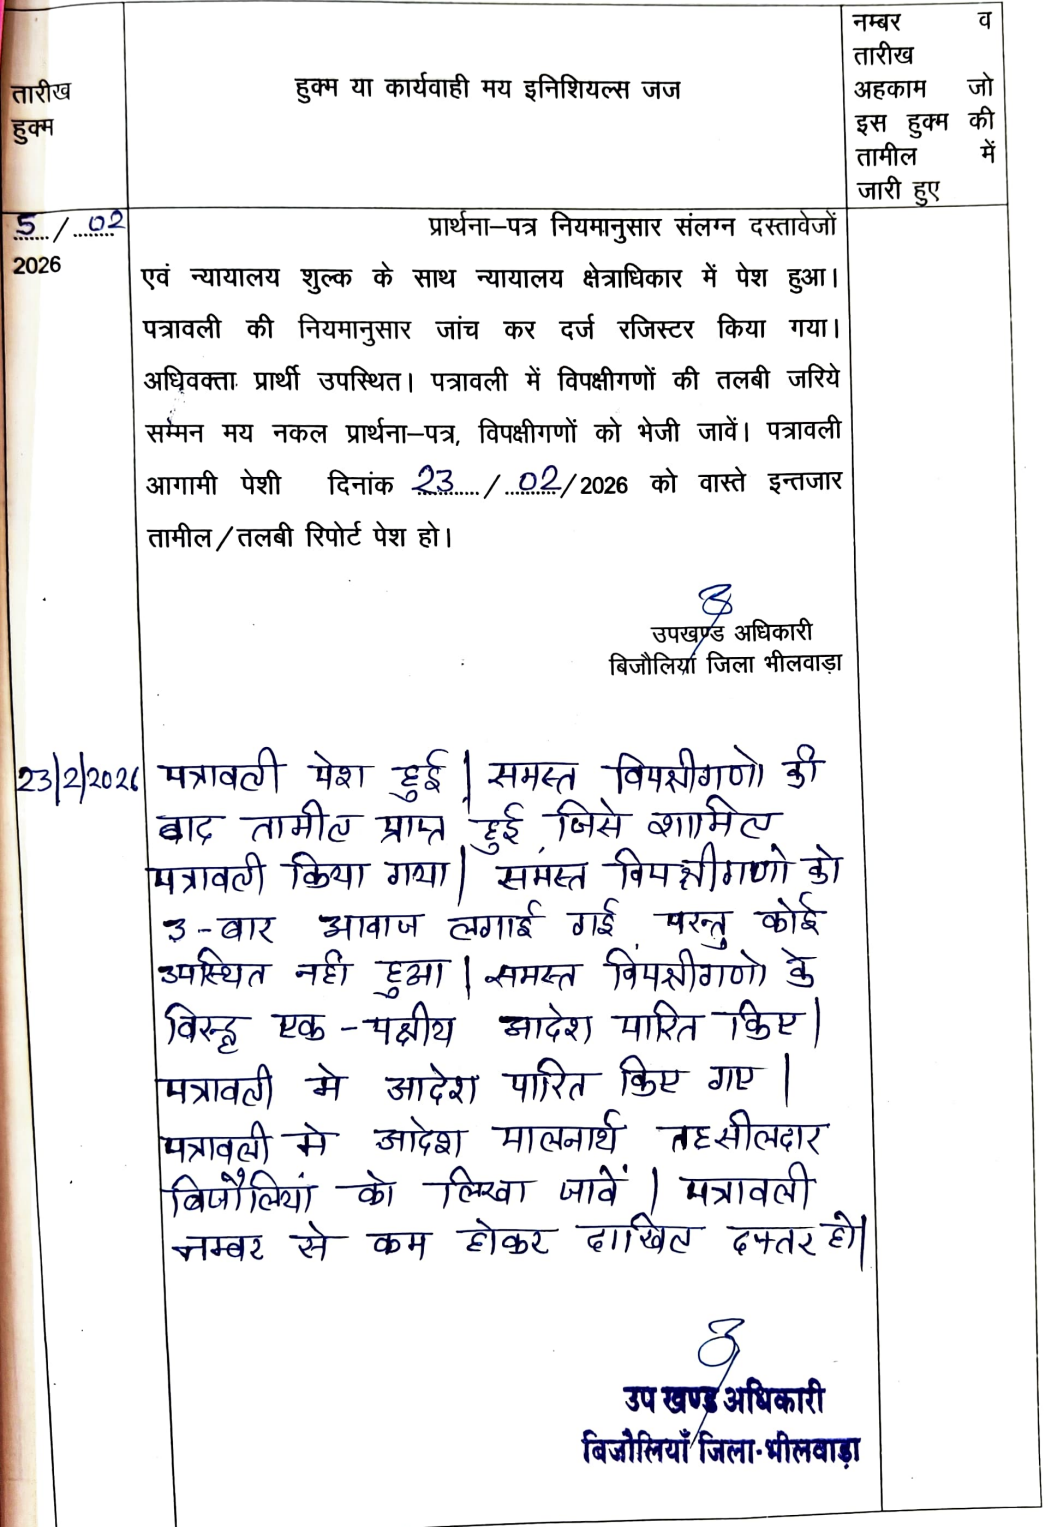 तारीख
हुक्म
हुक्म या कार्यवाही मय इनिशियल्स जज
नम्बर व
तारीख
अहकाम जो
इस हुक्म की
तामील में
जारी हुए
5/02
2026
प्रार्थना–पत्र नियमानुसार संलग्न दस्तावेजों
एवं न्यायालय शुल्क के साथ न्यायालय क्षेत्राधिकार में पेश हुआ।
पत्रावली की नियमानुसार जांच कर दर्ज रजिस्टर किया गया।
अधिवक्ता प्रार्थी उपस्थित। पत्रावली में विपक्षीगणों की तलबी जरिये
सम्मन मय नकल प्रार्थना–पत्र, विपक्षीगणों को भेजी जावें। पत्रावली
आगामी पेशी दिनांक 23/02/2026 को वास्ते इन्तजार
तामील/तलबी रिपोर्ट पेश हो।
उपखण्ड अधिकारी
बिजौलियां जिला भीलवाड़ा
23/2/2026
पत्रावली पेश हुई। समस्त विपक्षीगणो की
बाद तामील प्राप्त हुई जिसे शामिल
पत्रावली किया गया। समस्त विपक्षीगणो को
3-बार आवाज लगाई गई परन्तु कोई
उपस्थित नही हुआ। समस्त विपक्षीगणो के
विरूद्ध एक-पक्षीय आदेश पारित किए।
पत्रावली मे आदेश पारित किए गए।
पत्रावली मे आदेश पालनार्थ तहसीलदार
बिजौलियां को लिखा जावें। पत्रावली
नम्बर से कम होकर दाखिल दफ्तर हो।
उप खण्ड अधिकारी
बिजौलियाँ जिला-भीलवाड़ा